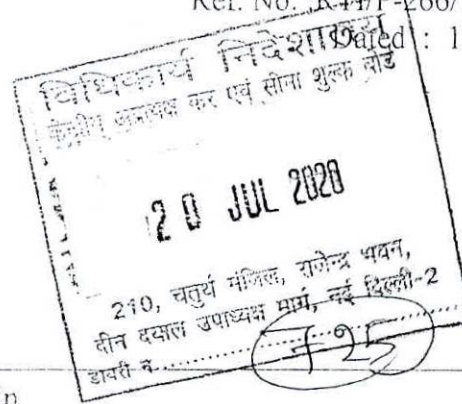 Ref. No. R-44/P-266/
Dated : 1
विधिकार्य निदेशालय
केन्द्रीय अप्रत्यक्ष कर एवं सीमा शुल्क बोर्ड
20 JUL 2020
210, चतुर्थ मंजिल, राजेन्द्र भवन,
दीन दयाल उपाध्यक्ष मार्ग, नई दिल्ली-2
डायरी नं.
725